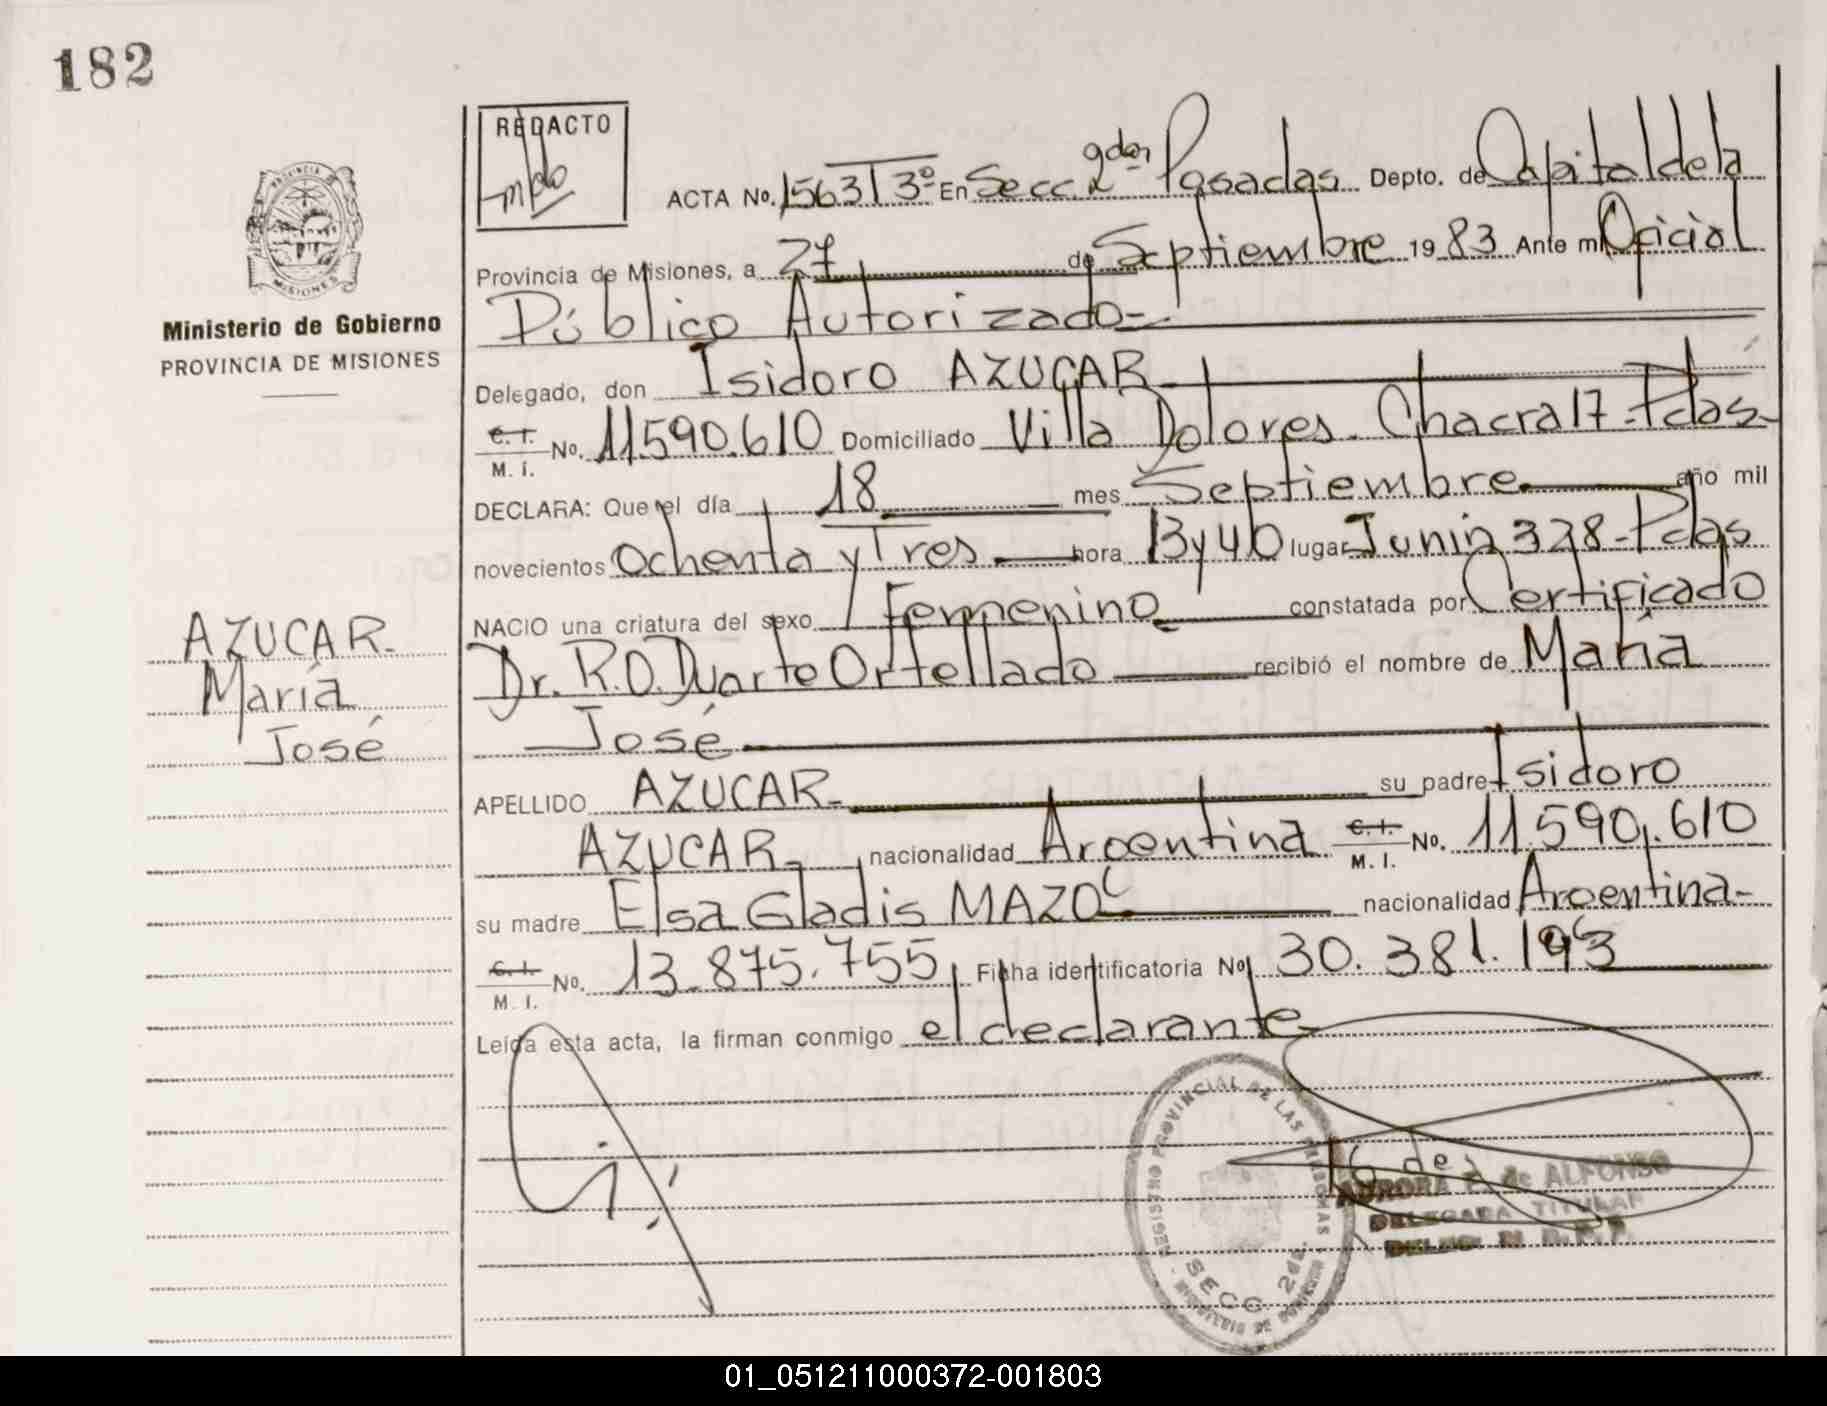 182
REDACTO
ACTA No. 1563 T 3º En Secc. 2da Posadas Depto. de Capital de la
Provincia de Misiones, a 27 de Septiembre 1983 Ante mi Oficial
Público Autorizado
Ministerio de Gobierno
PROVINCIA DE MISIONES
Delegado, don Isidoro AZUCAR
C. I. M. I. No. 11.590.610 Domiciliado Villa Dolores. Chacra 17-Pdas-
DECLARA: Que el día 18 mes Septiembre año mil
novecientos Ochenta y Tres hora 13 y 40 lugar Junin 328-Pdas
NACIO una criatura del sexo Femenino constatada por Certificado
Dr. R.O. Duarte Ortellado recibió el nombre de María
José
AZUCAR
María
José
APELLIDO AZUCAR su padre Isidoro
AZUCAR nacionalidad Argentina C. I. M. I. No. 11.590.610
su madre Elsa Gladis nacionalidad Argentina-
C. I. M. I. No. 13.875.755 Ficha identificatoria No 30.381.193
Leída esta acta, la firman conmigo el declarante
REGISTRO PROVINCIAL DE LAS PERSONAS
SECC. 2da.
AURORA de ALFONSO
DELEGADA TITULAR
01_051211000372-001803